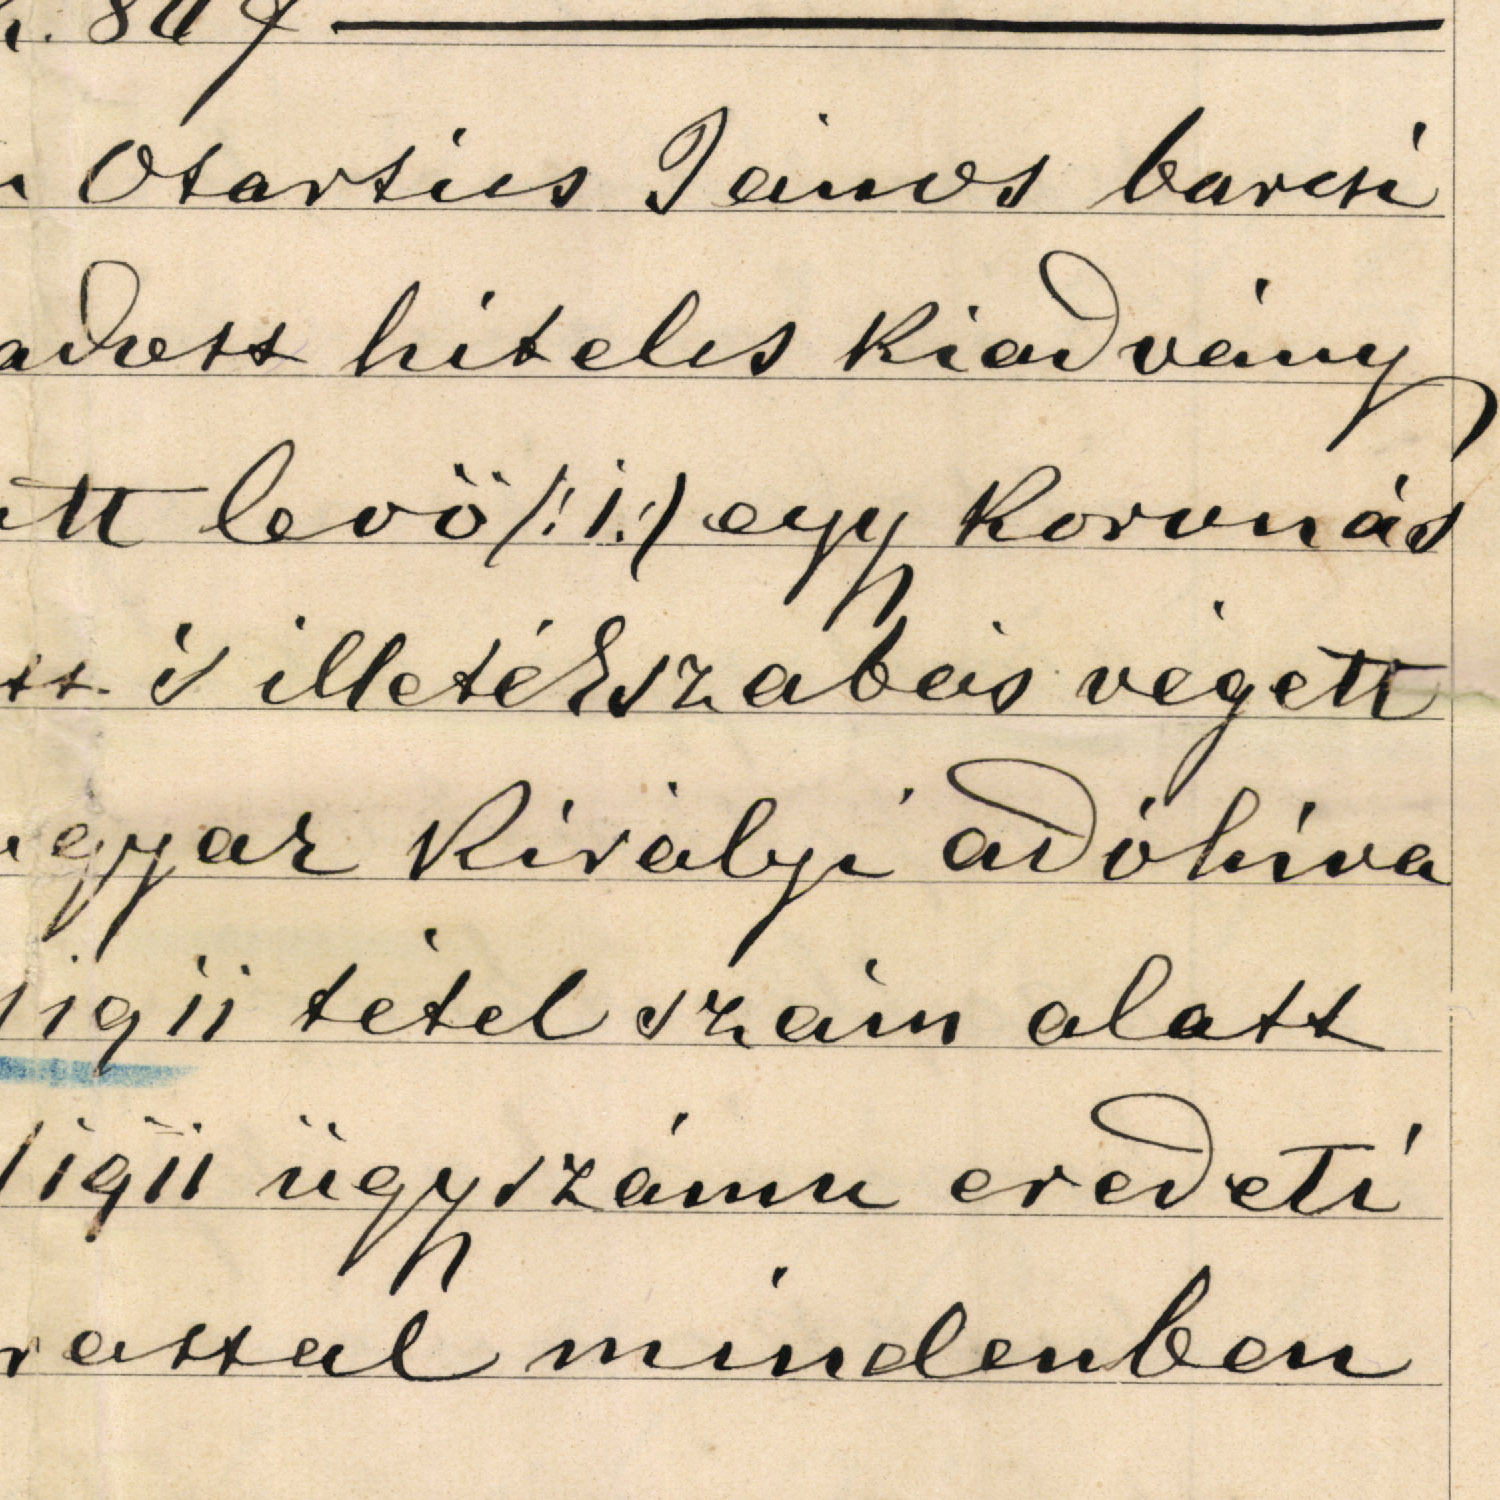 Otartics János barcsi
adott hiteles kiadvány
ett levö /:1:/ egy koronás
tt. is illetékszabás végett
gyar Királyi adóhiva
1911 tétel szám alatt
1911 ügyszámu eredeti
rattal mindenben